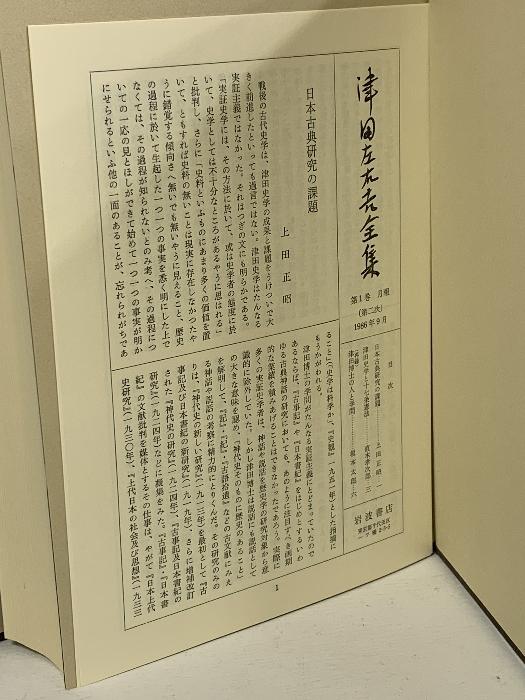 津田左右吉全集
第1巻 月報
(第二次)
1986年9月
目次
日本古典研究の課題………上田正昭…一
津田史学と十七条憲法………直木孝次郎…三
津田博士の人と学問………根本太郎…六
岩波書店
東京都千代田区
一ツ橋2-5-5
日本古典研究の課題
上田正昭
戦後の古代史学は、津田史学の成果と課題をうけついで大
きく前進したといっても過言ではない。津田史学はたんなる
実証主義ではなかった。それはつぎの文にも明らかである。
「実証史学には、その方法に於いて、或は史学者の態度に於
いて、史学としては不十分なところがあるやうに思はれる」
と批判し、さらに「史料といふものにあまり多くの価値を置
いて、ともすれば史料の無いことは現実に存在しなかつたや
うに錯覚する傾向さへ無いでも無いやうに見えること、歴史
の過程に於いて生起した一つ一つの事実を悉く明にした上で
なくては、その過程が知られないとのみ考へ、その過程につ
いての一応の見とほしができて始めて一つ一つの事実が明か
にせられるといふ他の一面のあることが、忘れられがちであ
ること」(「史学は科学か」、『史観』一九五一年)とした指摘に
もうかがわれる。
津田博士の学問がたんなる実証主義にとどまっていたので
あるならば、『古事記』や『日本書紀』をはじめとするいわ
ゆる古典神話の研究においても、あのように注目すべき画期
的な業績を積みあげることはできなかったであろう。実際に
多くの実証史学者は、神話や説話を歴史学の研究対象から意
識的に除外していた。しかし津田博士は説話にも説話として
の大きな意味を認め、「神代史そのものに歴史のあること」
を解明して、『記』・『紀』・『古語拾遺』などの古文献にみえ
る神話や説話の考察に精力的にとりくんだ。その研究のみの
りは、『神代史の新しい研究』(一九一三年)を最初として『古
事記及び日本書紀の新研究』(一九一九年)、さらに増補改訂
された『神代史の研究』(一九二四年)、『古事記及日本書紀の
研究』(一九二四年)などに凝集をみた。『古事記』・『日本書
紀』の文献批判を媒体とするその仕事は、やがて『日本上代
史研究』(一九三〇年)、『上代日本の社会及び思想』(一九三三
1